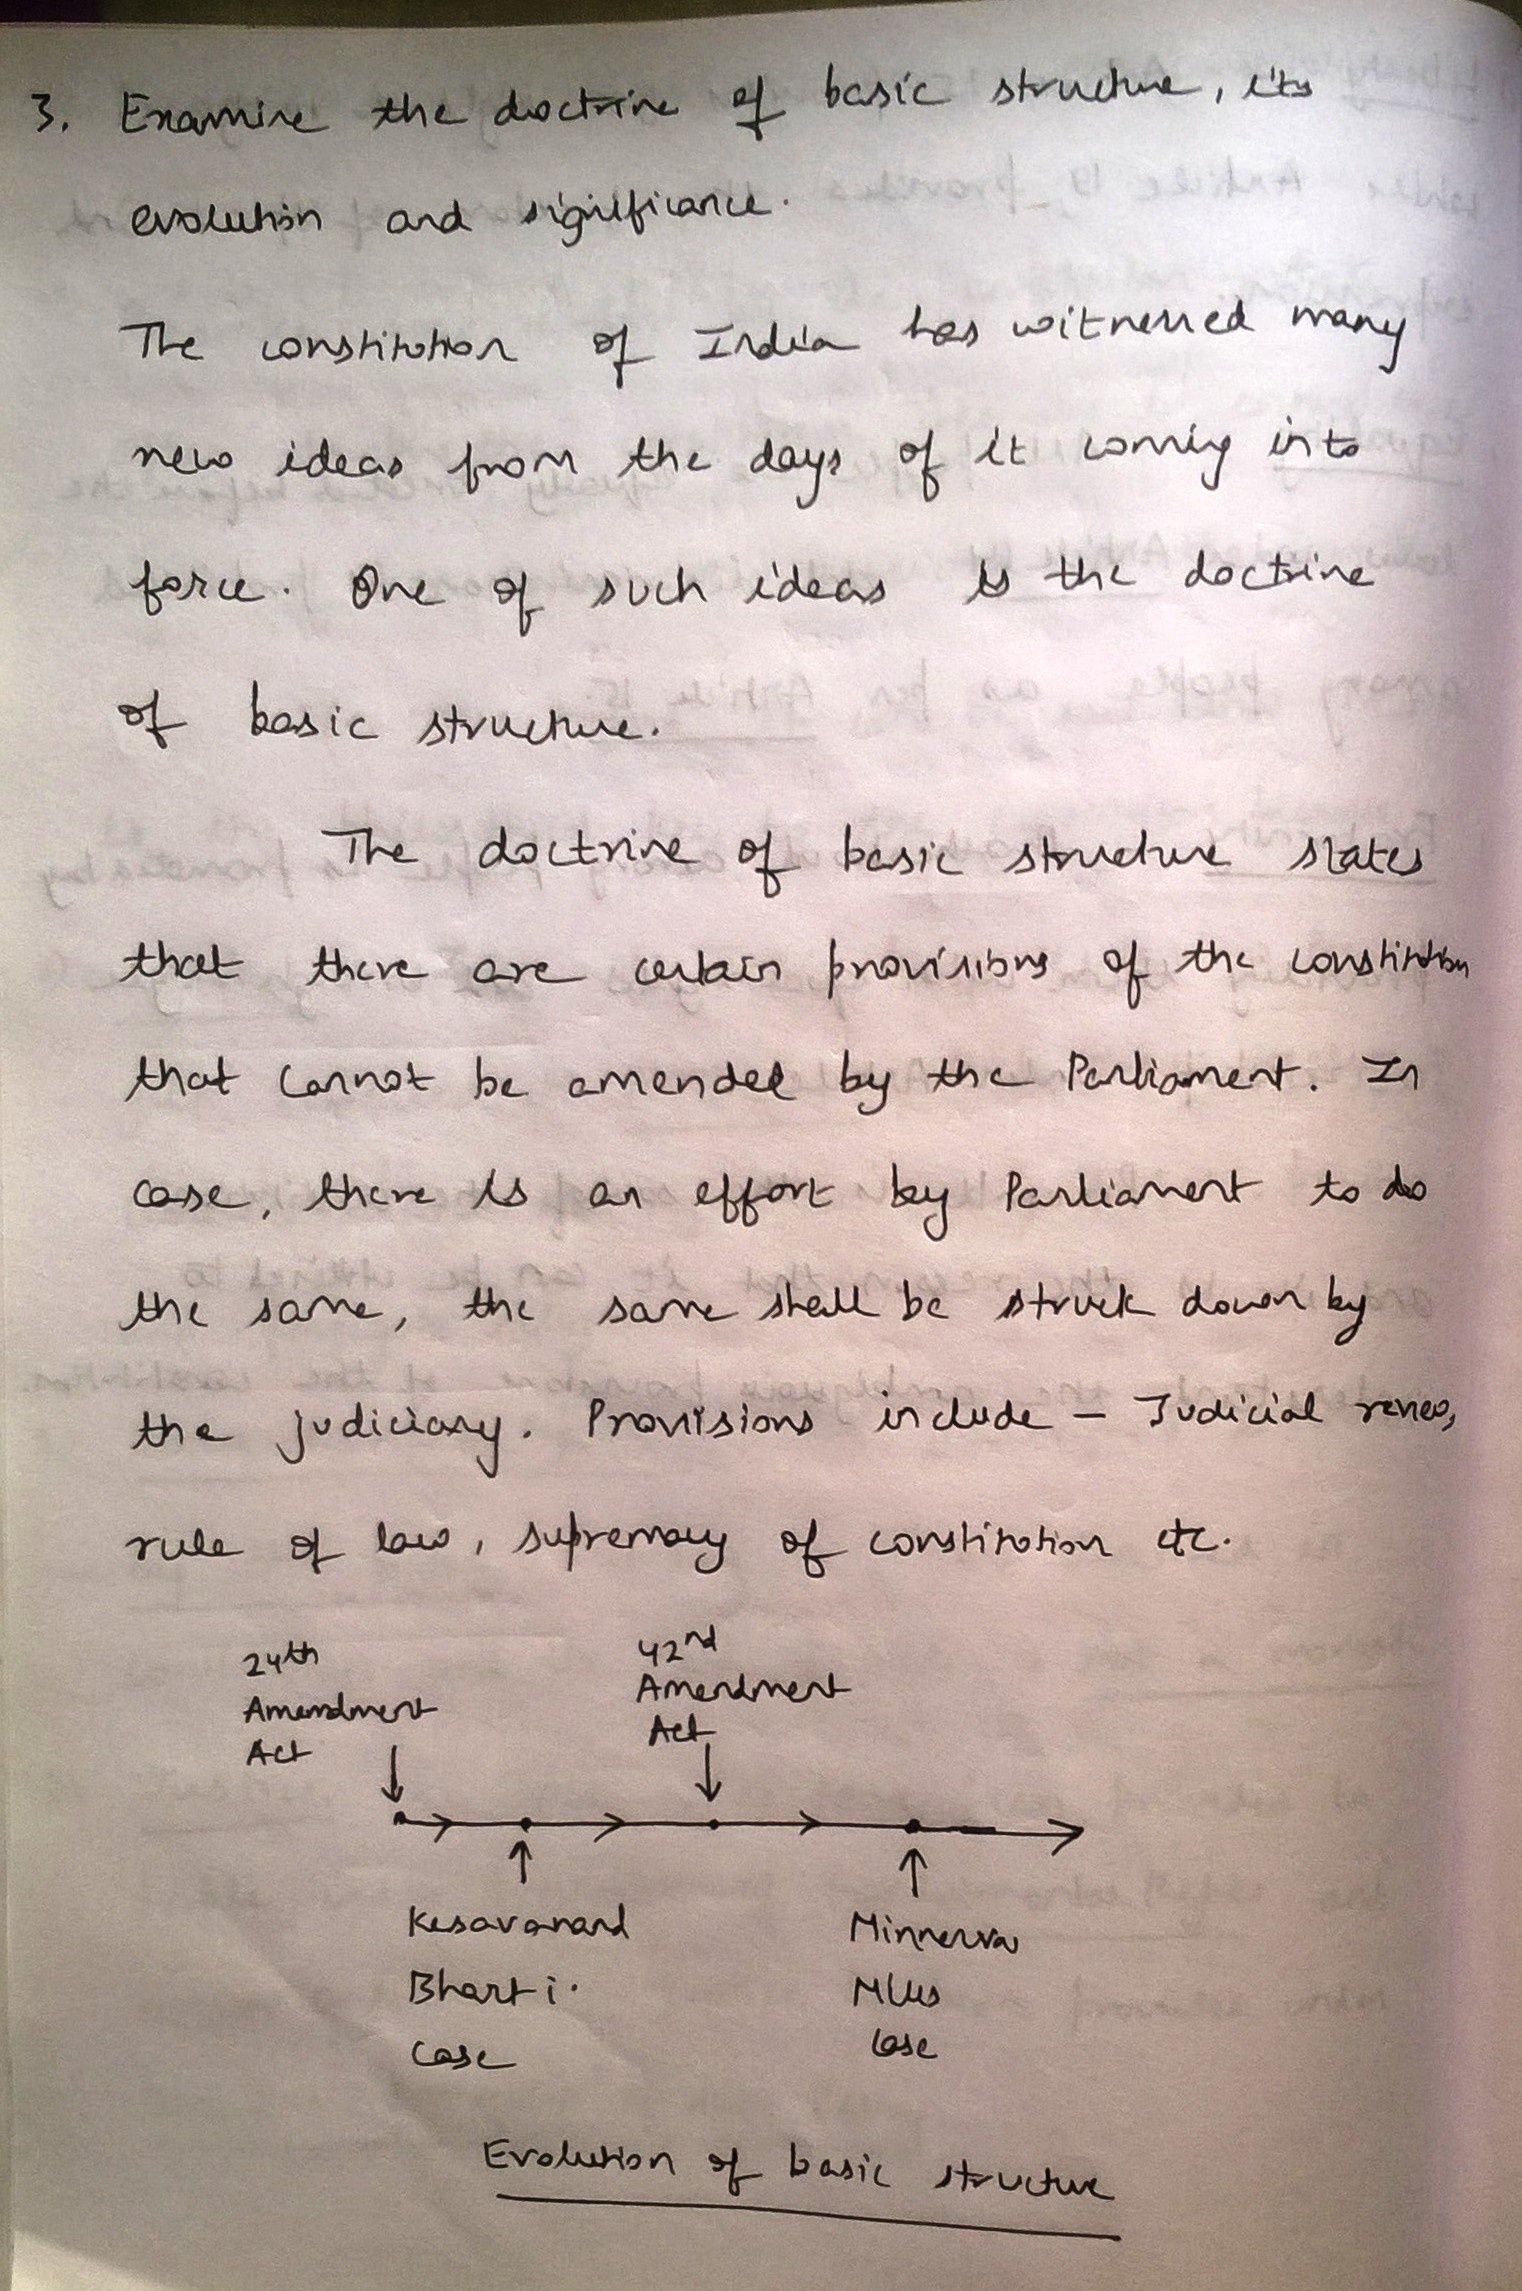 3. Examine the doctrine of basic structure, its
evolution and significance.
The constitution of India has witnessed many
new ideas from the days of it coming into
force. One of such ideas is the doctrine
of basic structure.
The doctrine of basic structure states
that there are certain provisions of the constitution
that cannot be amended by the Parliament. In
case, there is an effort by Parliament to do
the same, the same shall be struck down by
the judiciary. Provisions include - Judicial review,
rule of law, supremacy of constitution etc.
24th
Amendment
Act
42nd
Amendment
Act
Kesavanand
Bharti
Case
Minnerva
Mills
Case
Evolution of basic structure